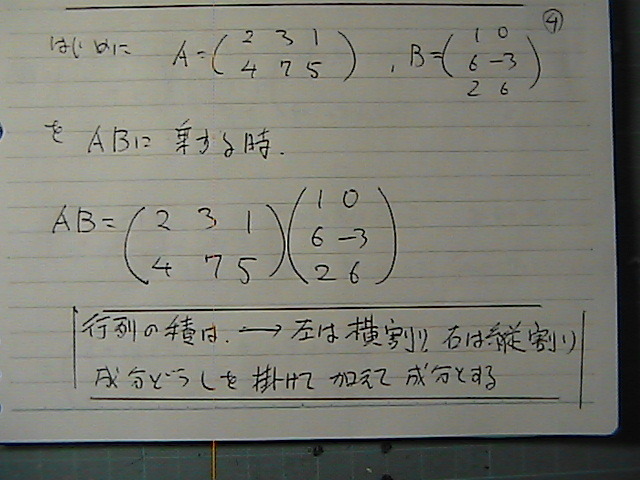 ④
はじめに A=(2 3 1
4 7 5), B=(1 0
6 -3
2 6)
を ABに 乗する時.
AB=(2 3 1
4 7 5)(1 0
6 -3
2 6)
行列の積は. → 左は横割り 右は縦割り
成分どうしを掛けて加えて成分とする